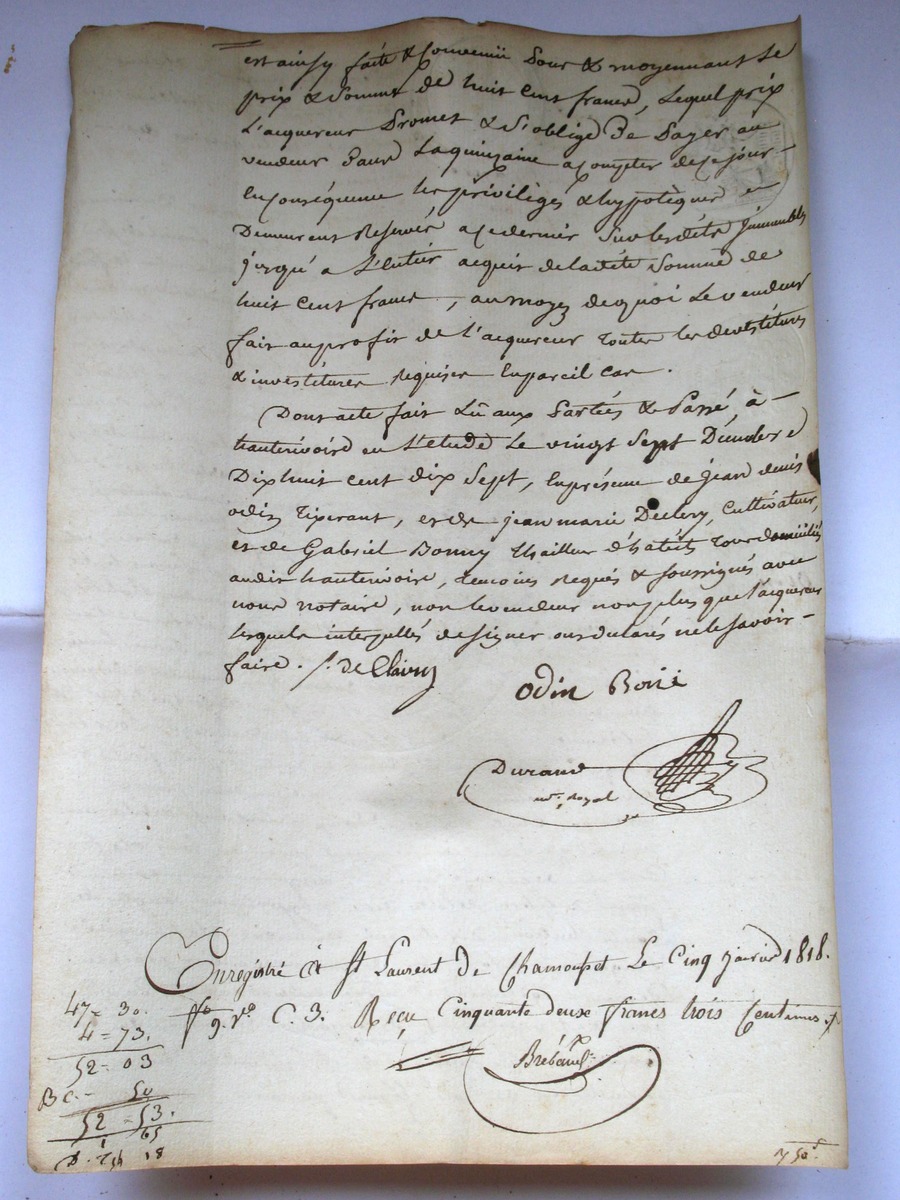 est ainsy faite & convenü pour & moyennant le
prix & Somme de huit cent francs, lequel prix
L'acquereur Promet & S'oblige de Payer au
vendeur dans La quinzaine a compter de ce jour -
En conséquence les privilèges & hypotèques
Demeurent Reservés a ce dernier Sur les dits jmmeubles
jusqu'a L'entier acquit de la dite Somme de
huit Cent francs, au moyen de quoi Le vendeur
fait au profit de l'acquereur toutes les devestitures
& investitures Requises En pareil cas.
Dont acte fait Lû aux Parties & Passé, à -
hauterivoire en L'etude Le vingt Sept Decembre
Dix huit cent dix Sept, En présence de jean denis
odin Tixerant, et de jean marie Declery, Cultivateur,
et de Gabriel Bonny thailleur d'habits tous domiciliés
audit hauterivoire, temoins Requis & soussignés avec
nous notaire, non le vendeur non plus que l'acquereur
lesquels interpellés de signer ont declarés ne le savoir -
faire. de Clairy
odin Boni
Durand
nre. Royal
Enregistré à St Laurent de Chamousset Le Cinq janvier 1818.
fo 9. vo C. 3. Reçu Cinquante deux francs trois Centimes
Brébant
47 = 30.
4 = 73.
52 = 03
50
52 - 53.
65
18